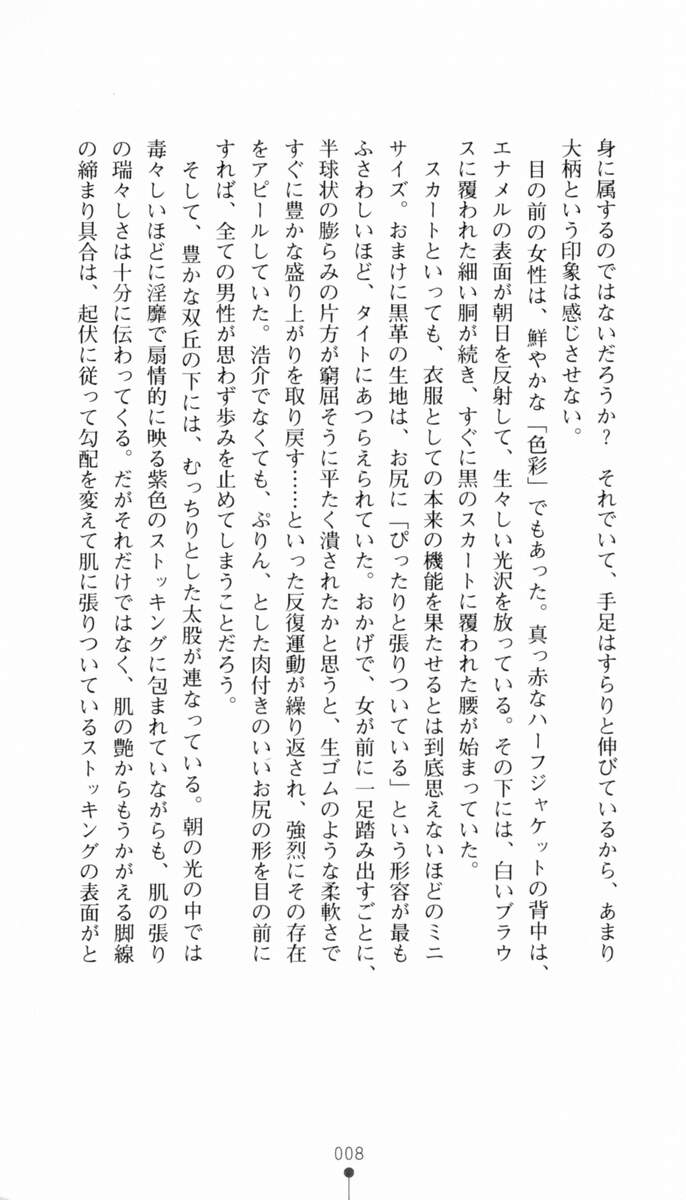 身に属するのではないだろうか？　それでいて、手足はすらりと伸びているから、あまり
大柄という印象は感じさせない。
　目の前の女性は、鮮やかな「色彩」でもあった。真っ赤なハーフジャケットの背中は、
エナメルの表面が朝日を反射して、生々しい光沢を放っている。その下には、白いブラウ
スに覆われた細い胴が続き、すぐに黒のスカートに覆われた腰が始まっていた。
　スカートといっても、衣服としての本来の機能を果たせるとは到底思えないほどのミニ
サイズ。おまけに黒革の生地は、お尻に「ぴったりと張りついている」という形容が最も
ふさわしいほど、タイトにあつらえられていた。おかげで、女が前に一足踏み出すごとに、
半球状の膨らみの片方が窮屈そうに平たく潰されたかと思うと、生ゴムのような柔軟さで
すぐに豊かな盛り上がりを取り戻す……といった反復運動が繰り返され、強烈にその存在
をアピールしていた。浩介でなくても、ぷりん、とした肉付きのいいお尻の形を目の前に
すれば、全ての男性が思わず歩みを止めてしまうことだろう。
　そして、豊かな双丘の下には、むっちりとした太股が連なっている。朝の光の中では
毒々しいほどに淫靡で扇情的に映る紫色のストッキングに包まれていながらも、肌の張り
の瑞々しさは十分に伝わってくる。だがそれだけではなく、肌の艶からもうかがえる脚線
の締まり具合は、起伏に従って勾配を変えて肌に張りついているストッキングの表面がと
008